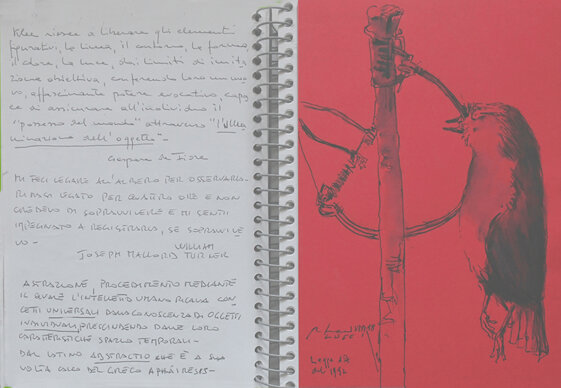 Klee riesce a liberare gli elementi
figurativi, la linea, il contorno, la forma,
il colore, la luce, dai limiti di imita
zione obiettiva, conferendo loro un nuo
vo, affascinante potere evocativo, capa
ce di assicurare all'individuo il
"possesso del mondo" attraverso "l'illu
minazione dell'oggetto"-
Gaspare De Fiore
MI FECI LEGARE ALL'ALBERO PER OSSERVARLO-
RIMASI LEGATO PER QUATTRO ORE E NON
CREDEVO DI SOPRAVVIVERE E MI SENTII
IMPEGNATO A REGISTRARLO, SE SOPRAVVIVE
VO -
WILLIAM
JOSEPH MALLORD TURNER
ASTRAZIONE, PROCEDIMENTO MEDIANTE
IL QUALE L'INTELLETTO UMANO RICAVA CON
CETTI UNIVERSALI DALLA CONOSCENZA DI OGGETTI
INDIVIDUALI, PRESCINDENDO DALLE LORO
CARATTERISTICHE SPAZIO TEMPORALI-
DAL LATINO ABSTRACTIO CHE È A SUA
VOLTA CALCO DEL GRECO APHAIRESIS-
Legge 157
del 1992